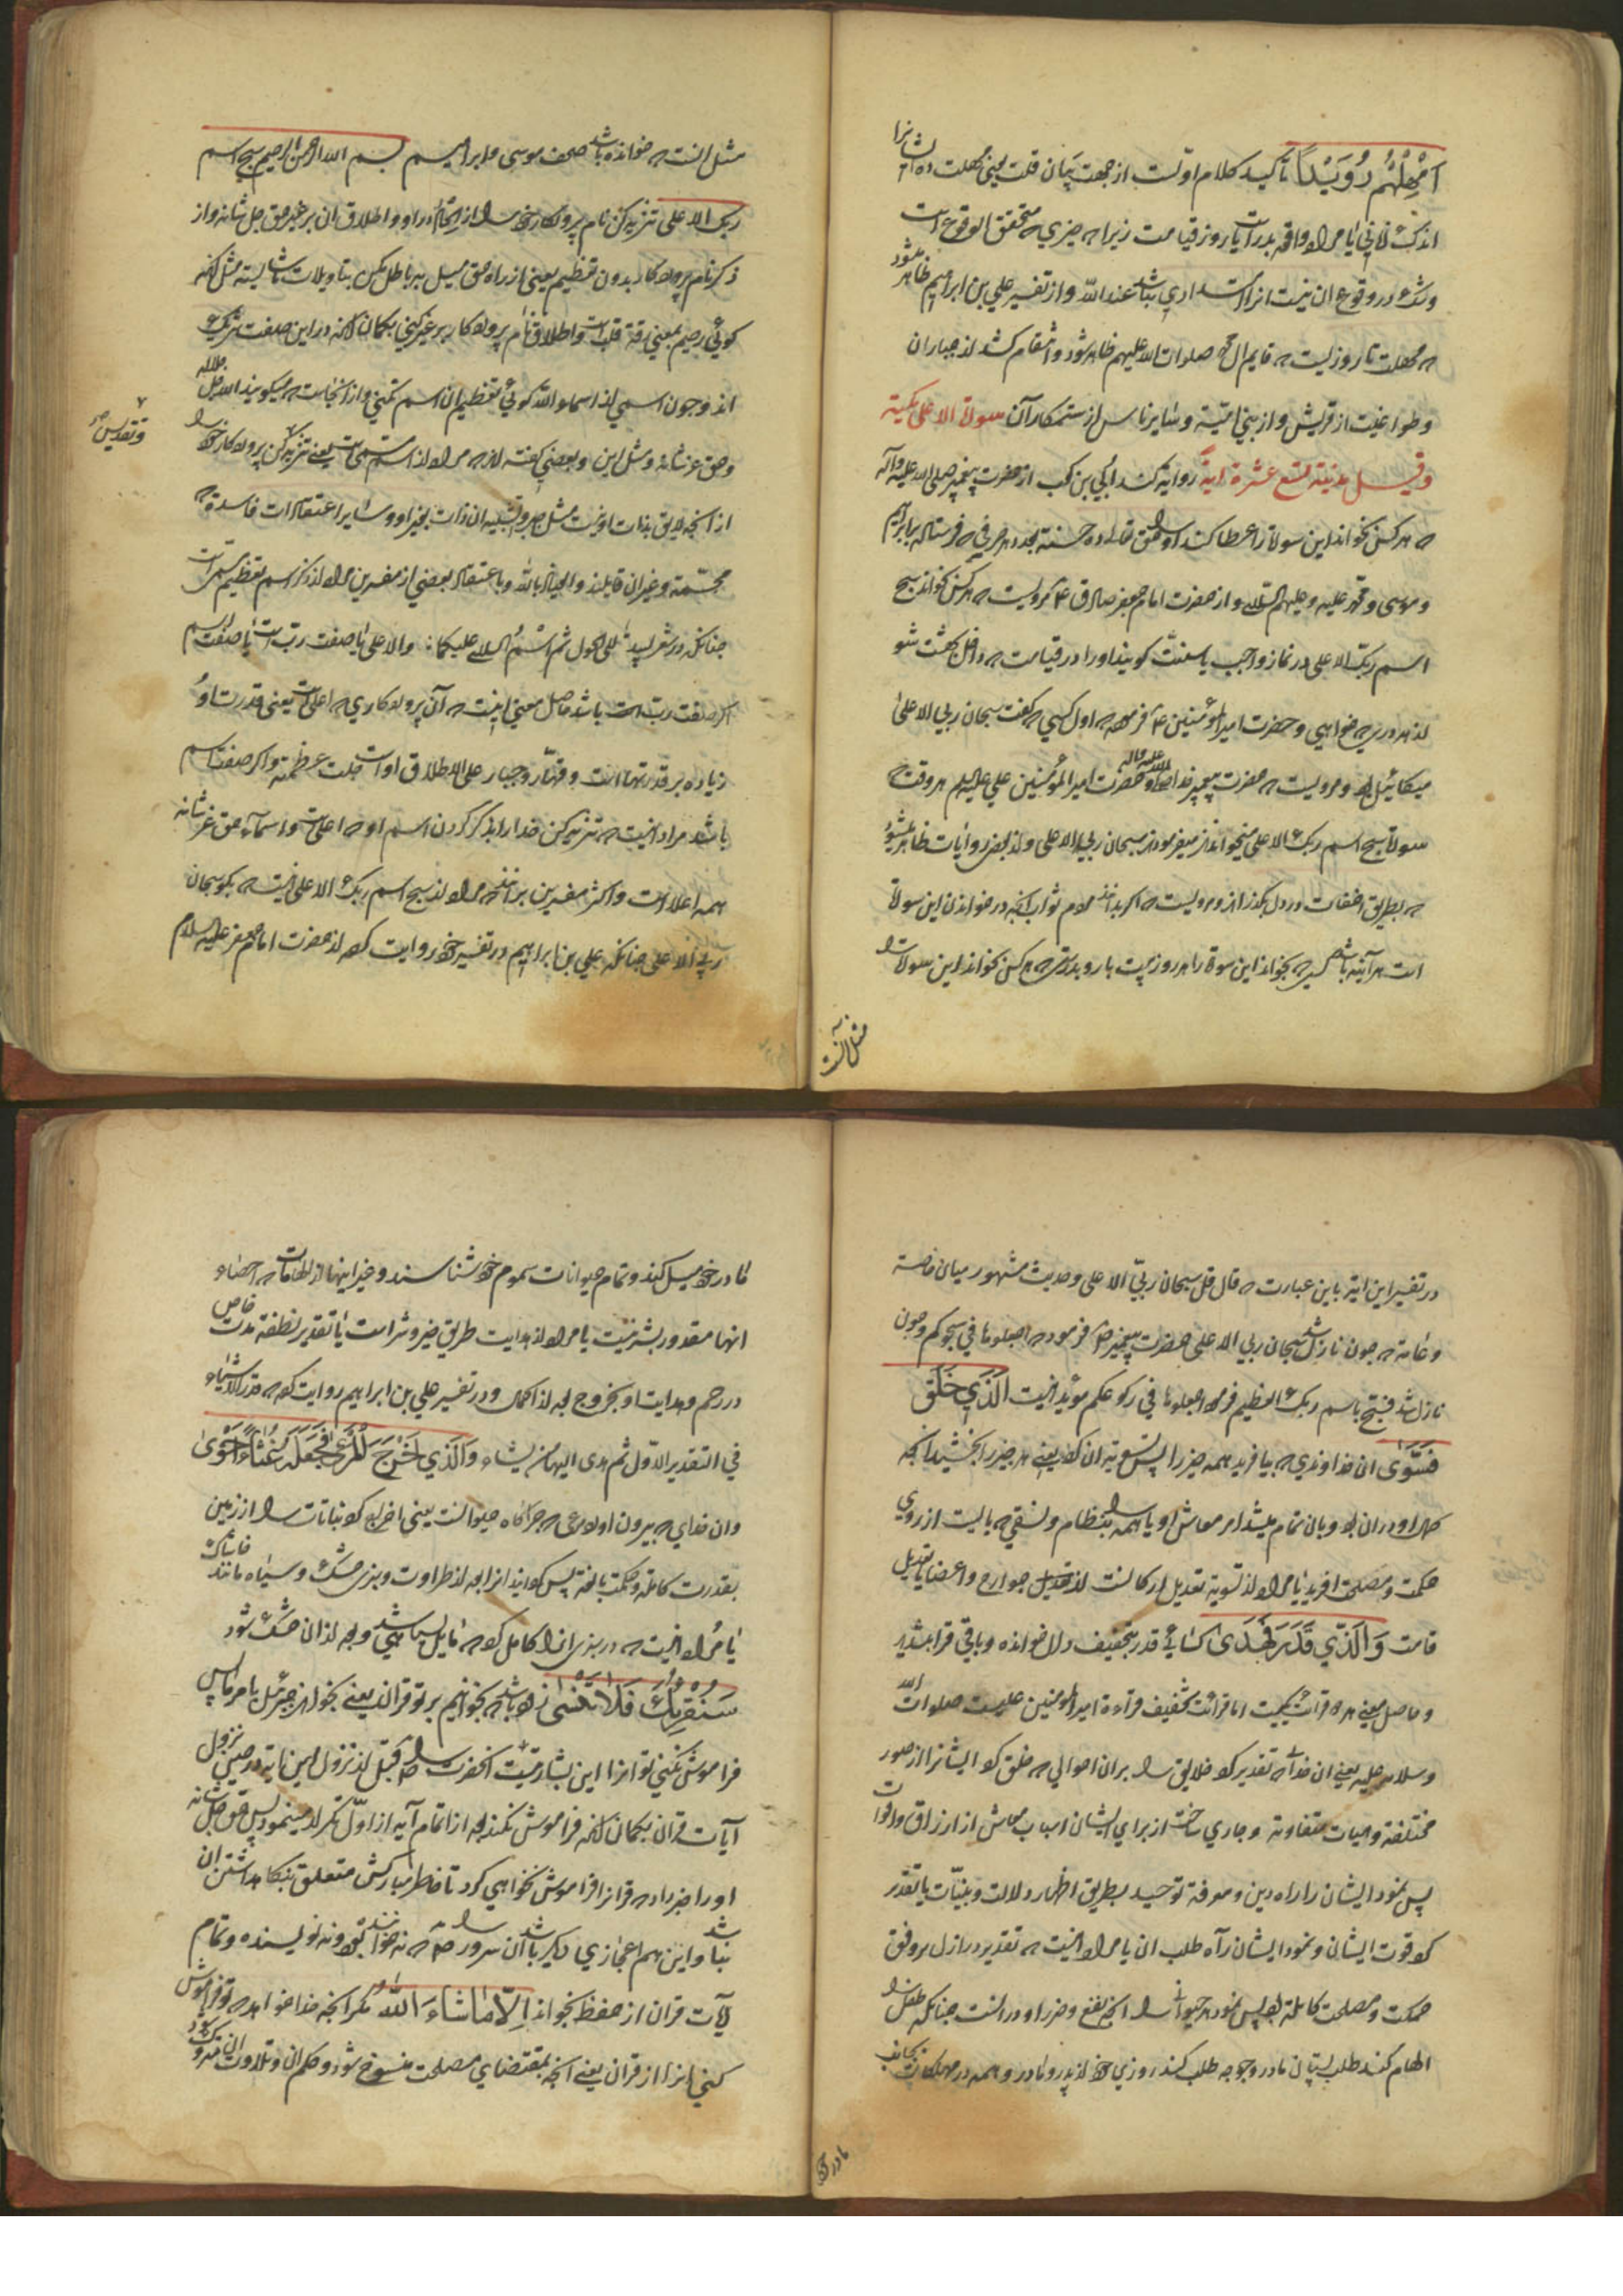 اَمْهِلْهُمْ رُوَيْدًا تاکید کلام اولست از جهت بیان قلت یعنی مهلت ده ایشانرا
اندک زمانی یا مراد واقعه بدر است یا روز قیامت زیراه جیزی ه متحقق الوقوع است
وشک در وقوع ان نیست انرا باشد عند الله و از تفسیر علی بن ابراهیم ظاهر میشود
ه مهلت تا روزیست ه قایم ال محمد صلوات الله علیهم ظاهر شود و انتقام کشد از جباران
وطواغیت از قریش و از بنی امیة و سایر ناس از ستمکاران سورة الاعلی مکیة
وقیل مدنیة تسع عشرة ایة روایة کند ابی بن کعب از حضرت پیغمبر صلی الله علیه وآله
ه هر کس بخواند این سوره را عطا کند او را حق تعالی ده حسنه بعدد هر حرفی ه فرستاده بابراهیم
وموسی و محمد علیه وعلیهم السلام و از حضرت امام جعفر صادق ع مرویست ه هر کس بخواند سبح
اسم ربک الاعلی در نماز واجب یا سنت کویند او را در قیامت ه داخل بهشت شو
از هر دری ه خواهی و حضرت امیر المؤمنین ع فرمود ه اول کسی ه کفت سبحان ربی الاعلی
میکائیل بود ومرویست ه حضرت پیغمبر خدا صلی الله علیه واله و حضرت امیر المؤمنین علی علیه السلم هر وقت ه
سورة سبح اسم ربک الاعلی میخواندند میفرمودند سبحان ربی الاعلی و از بعض روایات ظاهر میشود
ه بطریق اخفات در دل بکذراند ومرویست ه اکر بدانند مردم ثواب انچه در خواندن این سورة
است هر آینه باشد کسی ه بخواند این سورة را هر روز بیست بار و بدرستی ه هر کس بخواند این سوره را
مثل انست
مثل انست ه خوانده باشد صحف موسی وابراهیم بسم الله الرحمن الرحیم سبح اسم
ربک الاعلی تنزیه کن نام پروردکار خود را از الحاد در او و اطلاق ان بر غیر حق جل شانه واز
ذکر نام پروردکار بدون تعظیم یعنی از راه حق میل به باطل مکن بتاویلات ناشایسته مثل انکه
کوئی رحیم بمعنی رقة قلب است واطلاق نام پروردکار بر غیر کنی بکمان انکه در این صفت شریک
اند وجون اسمی از اسماء الله کوئی تعظیم ان اسم کنی و از اینجاست ه میکویند الله جل جلاله
وحق عز شانه و مثل این وبعضی کفته اند ه مراد از اسم مسمی است یعنی تنزیه کن پروردکار خود را
وتقدیس
از انچه لایق بذات او نیست مثل جبر و تشبیه ان ذات بغیر او و سایر اعتقادات فاسده ه
مجسمة وغیر ان قایلند والعیاذ بالله وباعتقاد بعضی از مفسرین مراد از ذکر اسم تعظیم مسمی است
جنانکه در شعر لبید الی الحول ثم اسم السلام علیکما والاعلی یا صفت رب است یا صفت اسم
اکر صفت رب است باشد حاصل معنی اینست ه آن پروردکاری ه اعلی است یعنی قدرت او
زیاده بر قدرتهاست و قهار و جبار علی الاطلاق اوست جلت عظمته واکر صفت اسم
باشد مراد انیست ه تنزیه کن خدا را بذکر کردن اسم او ه اعلی است و اسماء حق عز شانه
همه اعلا است واکثر مفسرین برانند ه مراد از سبح اسم ربک الاعلی انیست ه بکو سبحان
ربی الاعلی جنانکه علی بن ابراهیم در تفسیر خود روایت کرده از حضرت امام جعفر علیه السلام
در تفسیر این ایة باین عبارت ه قال قل سبحان ربی الاعلی وحدیث مشهور میان خاصة
وعامة ه جون نازل شد سبحان ربی الاعلی حضرت پیغمبر ص فرمود ه اجعلوها فی سجودکم وجون
نازل شد فسبح باسم ربک العظیم فرمود اجعلوها فی رکوعکم مؤید انیست اَلَّذِي خَلَقَ
فَسَوّٰى ان خداوندی ه بیافرید همه جیز را پس تسویة ان کرد یعنی هر جیز را بخشید انچه
صلاح او در ان بود وبان تمام میشد امر معاش او یا همه را بنظام و نسقی ه بایست از روی
حکمت ومصلحت افرید یا مراد از تسویة تعدیل ارکانست از جوارح واعضا یا تعدیل
قامت وَالَّذِي قَدَّرَ فَهَدٰى کسائی قدر بتخفیف دال خوانده وباقی قرا بتشدید
وحاصل معنی هر دو قرائت یکیست اما قرائت بتخفیف قراءة امیر المومنین علیست صلوات الله
وسلامه علیه یعنی ان خدا ه تقدیر کرد خلایق را بران احوالی ه خلق کرد ایشانرا از صور
مختلفة وهیات متفاوتة وجاری ساخت از برای ایشان اسباب معاش از ارزاق واقوات
پس نمود ایشان را راه دین و معرفة توحید بطریق اظهار دلالات وبینات یا تقدیر
کرد قوت ایشان و نمود ایشان راه طلب ان یا مراد انیست ه تقدیر در ازل بر وفق
حکمت ومصلحت کاملة بود پس نمود هر حیوانی را انچه نفع وضرر او در انست جنانکه طفل را
الهام کند طلب پستان مادر وجوجه طلب کند روزی خود از پدر ومادر وهمه در مهلکات بجانب
مادر خود
مادر خود میل کنند وتمام حیوانات سموم خود شناسند و غیر اینها از الهامات ه احصاء
انها مقدور بشر نیست یا مراد از هدایت طریق خیر وشر است یا تقدیر نطفة مدت خاص
در رحم وهدایت او بخروج بعد از اکمال ودر تفسیر علی بن ابراهیم روایت کرده ه قدر الاشیاء
فی التقدیر الاول ثم هدی الیها من یشاء وَالَّذِي اَخْرَجَ الْمَرْعٰى فَجَعَلَهُ غُثَاءً اَحْوٰى
وان خدای ه بیرون اورد مرعی ه جراکاه حیوانست یعنی اخراج کرد نباتات را از زمین
بقدرت کاملة وحکمت بالغة پس کردانید انرا بعد از طراوت وسبزی خشک وسیاه مانند خاشاک
یا مراد انیست ه در سبزی انرا کامل کرد ه مایل بسیاهی شد وبعد از ان خشک شود
سَنُقْرِئُكَ فَلَا تَنْسٰى زود باشد ه بخوانیم بر تو قران یعنی بخواند جبرئیل بامر ما پس
فراموش نکنی تو انرا این بشارتیست انحضرت را ص ه قبل از نزول این ایة در حین نزول
آیات قران بکمان انکه فراموش نکند بعد از اتمام آیه از اول تکرار مینمود پس حق جل شانه
او را خبر داد ه قرانرا فراموش نخواهی کرد تا خاطر مبارکش متعلق بنکاهداشتن ان
نباشد واین هم اعجازی دیکر باشد آن سرور را ص ه نه خواننده بود ونه نویسنده وتمام
آیات قران از حفظ بخواند اِلَّا مَا شَاءَ اللّٰهُ مکر انچه خدا خواهد ه تو فراموش
کنی انرا از قران یعنی انچه بمقتضای مصلحت منسوخ شود وحکم ان وتلاوت ان متروک شود